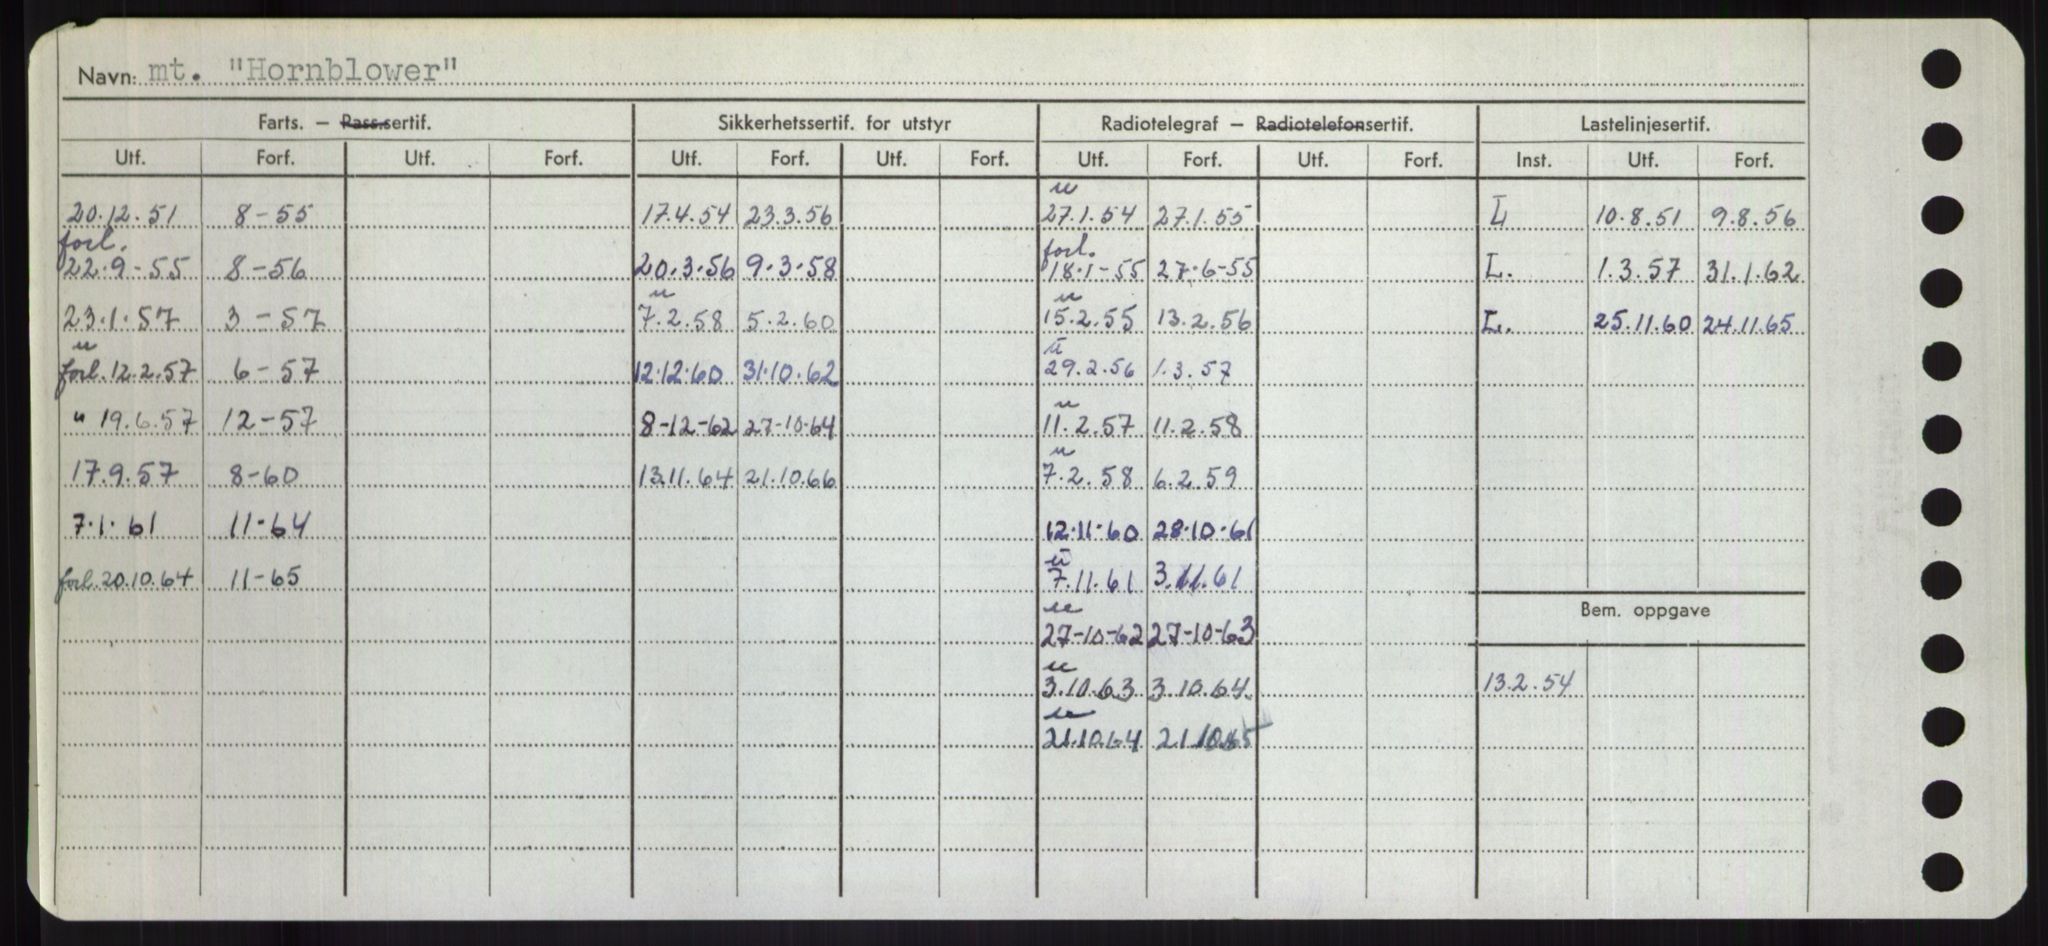 Navn: mt. "Hornblower"
Farts. — Pass.sertif. Sikkerhetssertif. for utstyr Radiotelegraf — Radiotelefonsertif. Lastelinjesertif.
Utf. Forf. Utf. Forf. Utf. Forf. Utf. Forf. Utf. Forf. Utf. Forf. Inst. Utf. Forf.
u
20.12.51 8-55 17.4.54 23.3.56 27.1.54 27.1.55 L 10.8.51 9.8.56
forl. forl.
22.9-55 8-56 20.3.56 9.3.58 18.1-55 27.6-55 L. 1.3.57 31.1.62
u u
23.1.57 3-57 7.2.58 5.2.60 15.2.55 13.2.56 L. 25.11.60 24.11.65
u u
forl. 12.2.57 6-57 12.12.60 31.10.62 29.2.56 1.3.57
u
" 19.6.57 12-57 8-12-62 27-10-64 11.2.57 11.2.58
u
17.9.57 8-60 13.11.64 21.10.66 7.2.58 6.2.59
7.1.61 11-64 12.11.60 28.10.61
u
forl. 20.10.64 11-65 7.11.61 3.11.61
u Bem. oppgave
27-10-62 27-10-63
u
3.10.63 3.10.64 13.2.54
u
21.10.64 21.10.65